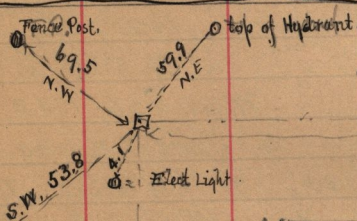 Fence Post.
top of Hydrant
69.5
N.W
59.9
N.E
S.W. 53.8
4.1
Elect Light.